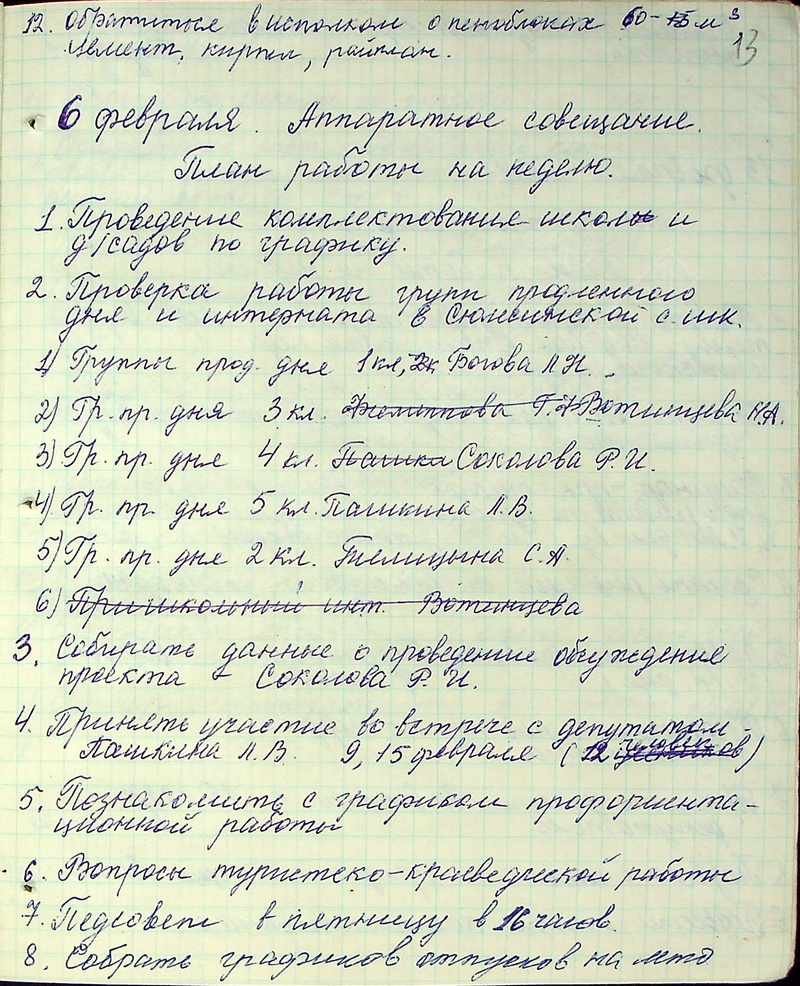 12. Обратиться в исполком о пеноблоках 60-15 м³
13
Цемент, кирпич, райплан.
6 февраля. Аппаратное совещание.
План работы на неделю.
1. Проведение комплектования школы и
д/садов по графику.
2. Проверка работы групп продленного
дня и интерната в Сюмсинской с. шк.
1) Группы прод. дня 1 кл, 2к Богова Л.Н.
2) Гр. пр. дня 3 кл. Вотинцева Н.А.
3) Гр. пр. дня 4 кл. Пашки Соколова Р.И.
4) Гр. пр. дня 5 кл. Пашкина Л.В.
5) Гр. пр. дня 2 кл. Телицына С.А.
6) Пришкольный инт. Вотинцева
3. Собирать данные о проведение обсуждение
проекта - Соколова Р.И.
4. Принять участие во встрече с депутатом -
Пашкина Л.В. 9, 15 февраля (12 человек)
5. Познакомить с графиком профориента-
ционной работы
6. Вопросы туристско-краеведческой работы
7. Педсовет в пятницу в 16 часов.
8. Собрать графиков отпусков на лето